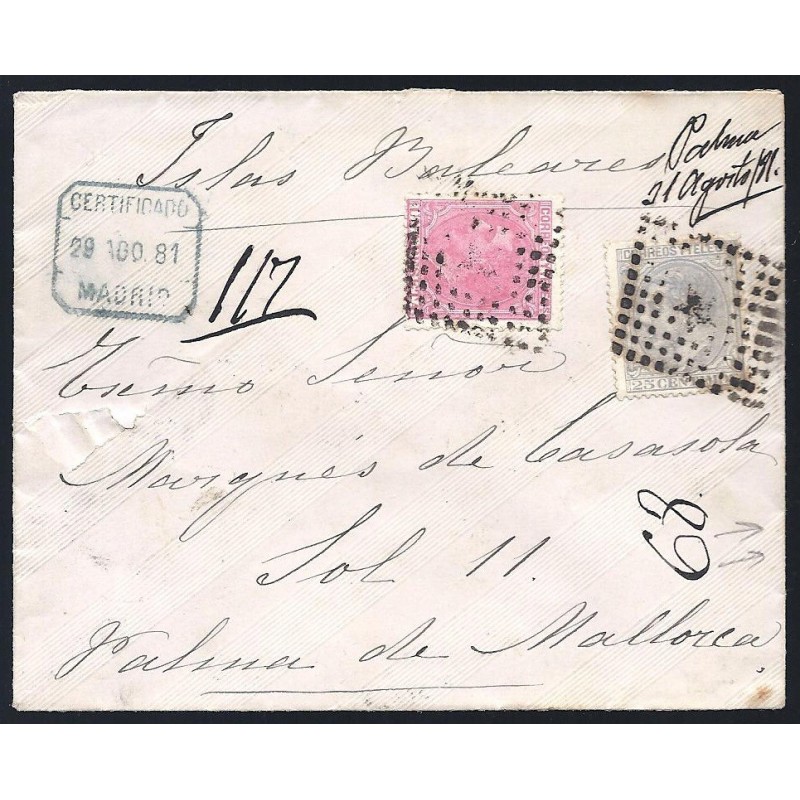 Islas Baleares
Palma
31 Agosto/81.
CERTIFICADO
29 AGO. 81
MADRID
117
CORREOS Y TELEG
25 CENT
Exc̃mo Señor
Marqués de Casasola
Sol 11.
68
Palma de Mallorca